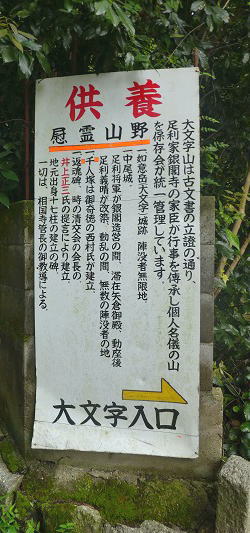 供養
慰霊山野
大文字山は古文書の立證の通り、
足利家銀閣寺の家臣が行事を傳承し個人名儀の山
を保存会が統一管理しています。
一如意岳大文字城跡 陣没者無限地
一中尾城
足利将軍が銀閣造営の間、滞在矢倉御殿、動座後
足利義晴が改築、動乱の間、無数の陣没者の地
一千人塚は御奇徳の西村氏が建立、
一返魂碑、時の清交会の会長の
井上正三氏の提言により建立、
地元出身十七柱の建立の碑、
一切は、相国寺管長の御教導による。
大文字入口